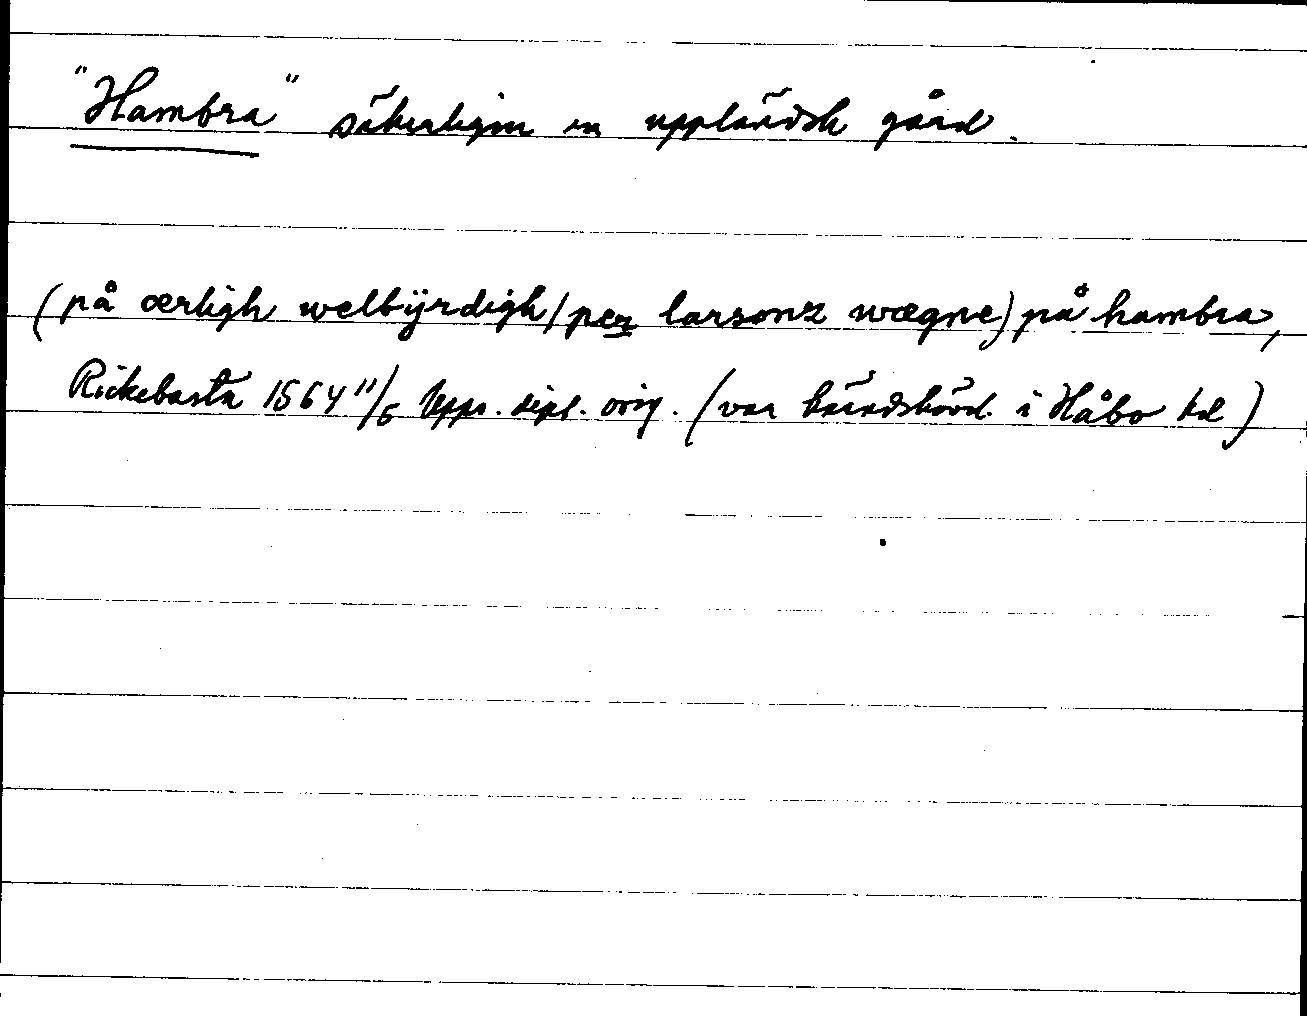 "Hambra" säkerligen en uppländsk gård.
(på ærligh welbÿrdigh/per larsonz wægne) på hambra,
Rickebasta 1564 11/6 Upps. dipl. orig. (var häradshövd. i Håbo hd)